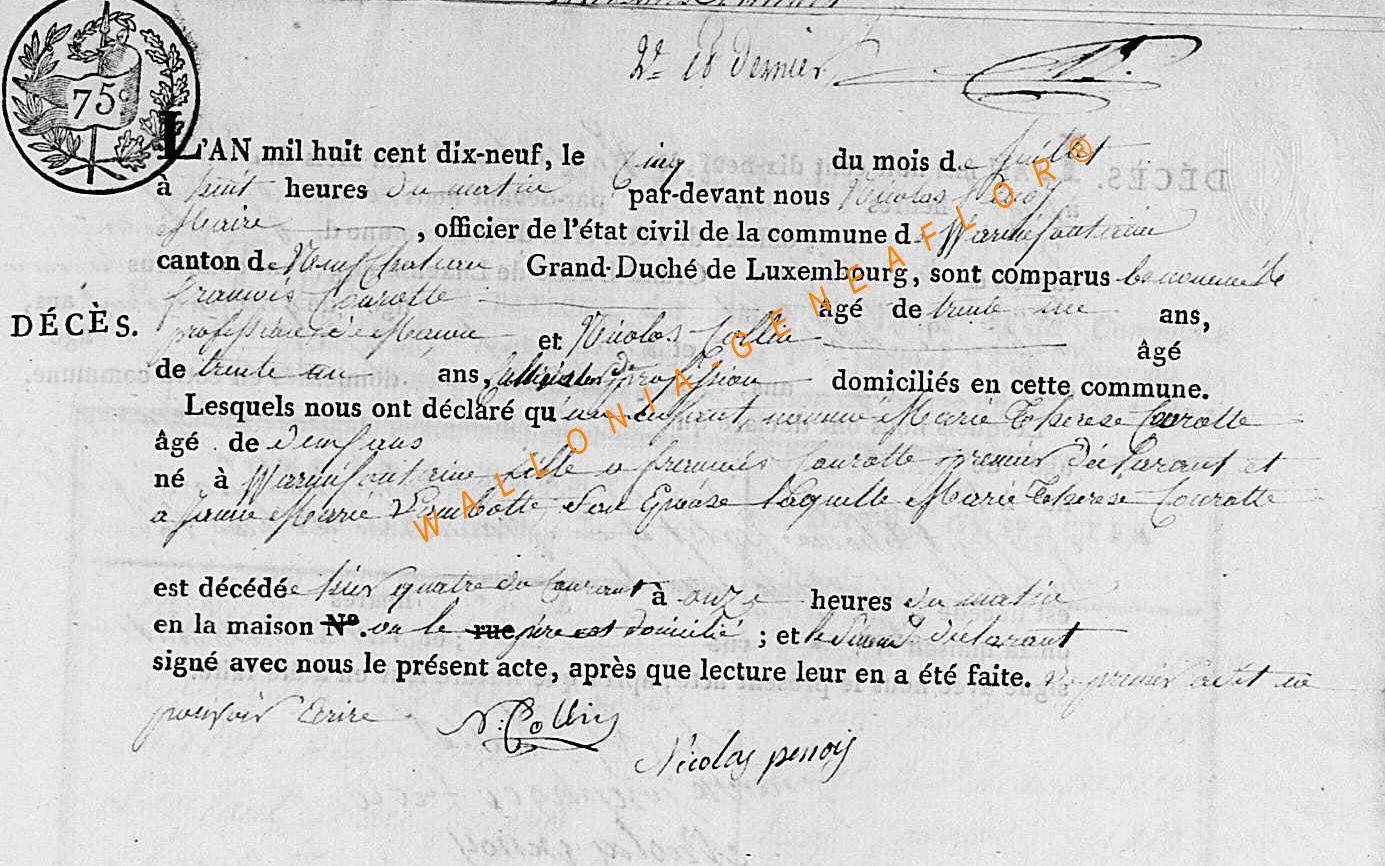 75c
2e et dernier
L'AN mil huit cent dix-neuf, le Cinq du mois de juillet
à huit heures du matin par-devant nous Nicolas
Maire, officier de l'état civil de la commune de Warmifontaine
canton de Neufchateau Grand-Duché de Luxembourg, sont comparus
françois Courotte âgé de trente un ans,
DÉCÈS.
profession de et Nicolas Collin âgé
de trente un ans, de profession domiciliés en cette commune.
Lesquels nous ont déclaré qu'un enfant nommé Marie Therese Courotte
âgé de deux ans
né à Warmifontaine fille a françois Courotte premier déclarant et
a Jeanne Marie son Epouse laquelle Marie Therese Courotte
est décédée hier quatre du Courant à onze heures du matin
en la maison N°. ou le rue père est domicilié ; et le second déclarant
signé avec nous le présent acte, après que lecture leur en a été faite. le premier
pouvoir Ecrire N. Collin
Nicolas penois
WALLONIA-GENEAFLOR®